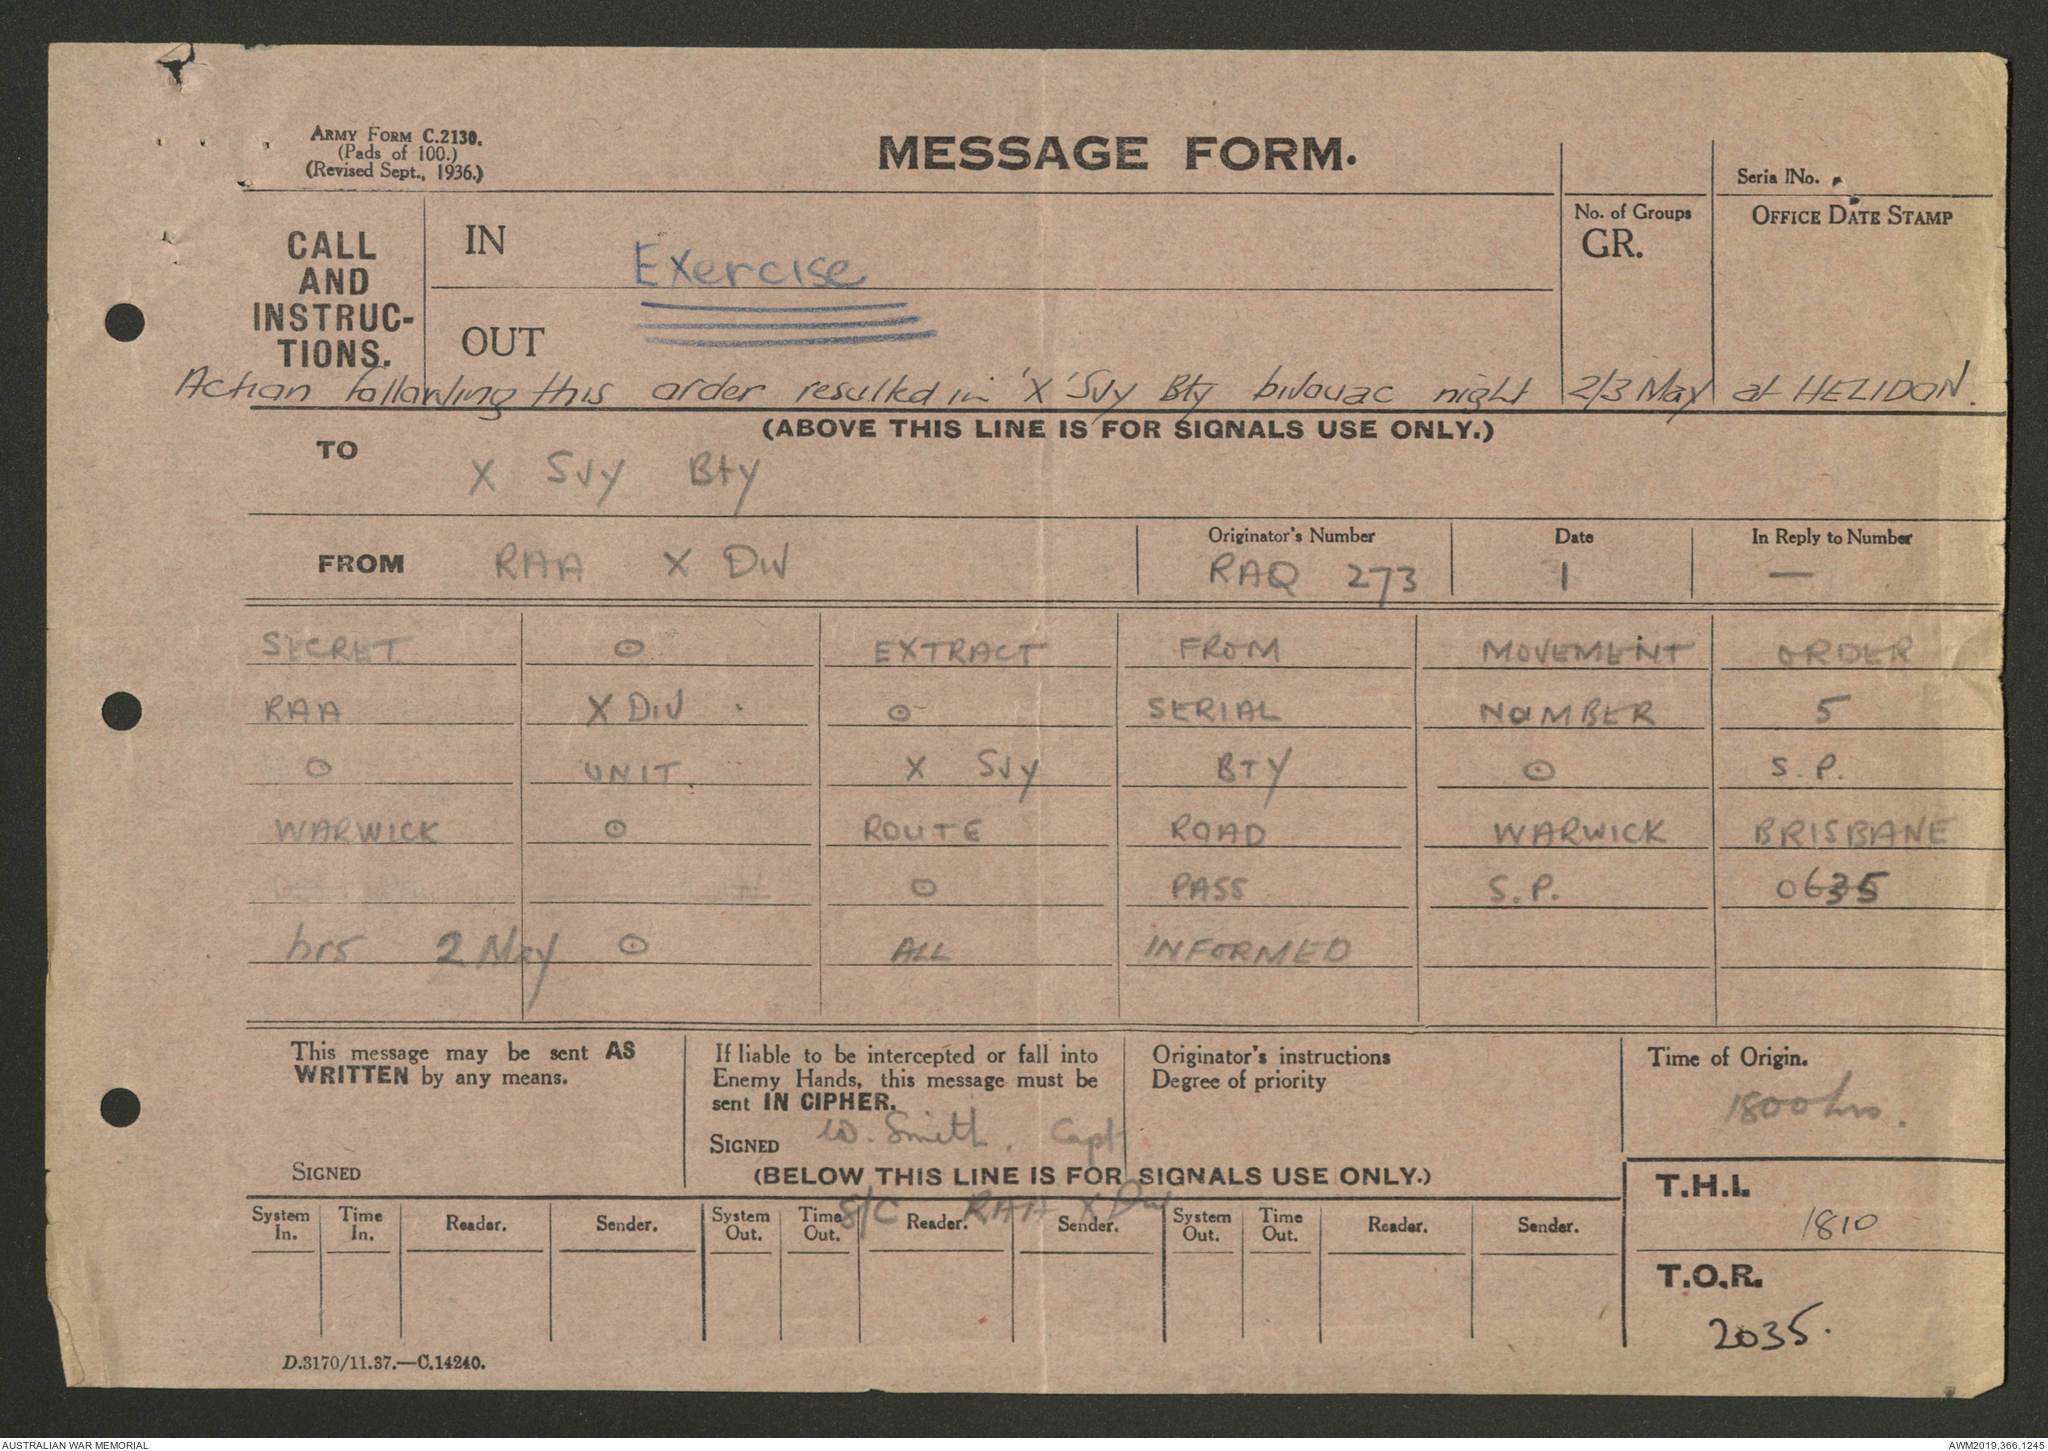 ARMY FORM C.2130.
(Pads of 100.)
(Revised Sept., 1936.)
MESSAGE FORM.
Seria lNo.
CALL AND INSTRUC-TIONS.
IN
Exercise
OUT
No. of Groups
GR.
OFFICE DATE STAMP
Action following this order resulted in 'X' Svy Bty bivouac night 2/3 May at HELIDON.
(ABOVE THIS LINE IS FOR SIGNALS USE ONLY.)
TO X Svy Bty
FROM RAA X Div
Originator's Number
RAQ 273
Date
1
In Reply to Number
—
SECRET ⊙ EXTRACT FROM MOVEMENT ORDER
RAA X Div ⊙ SERIAL NUMBER 5
⊙ UNIT X Svy BTY ⊙ S.P.
WARWICK ⊙ ROUTE ROAD WARWICK BRISBANE
⊙ PASS S.P. 0635
hrs 2 May ⊙ ALL INFORMED
This message may be sent AS
WRITTEN by any means.
SIGNED
If liable to be intercepted or fall into
Enemy Hands, this message must be
sent IN CIPHER.
SIGNED W. Smith. Capt
Originator's instructions
Degree of priority
Time of Origin.
1800 hrs.
(BELOW THIS LINE IS FOR SIGNALS USE ONLY.)
S/C RAA X Div
System In. Time In. Reader. Sender. System Out. Time Out. Reader. Sender. System Out. Time Out. Reader. Sender.
T.H.I.
1810
T.O.R.
2035.
D.3170/11.37.—C.14240.
AUSTRALIAN WAR MEMORIAL
AWM2019.366.1245